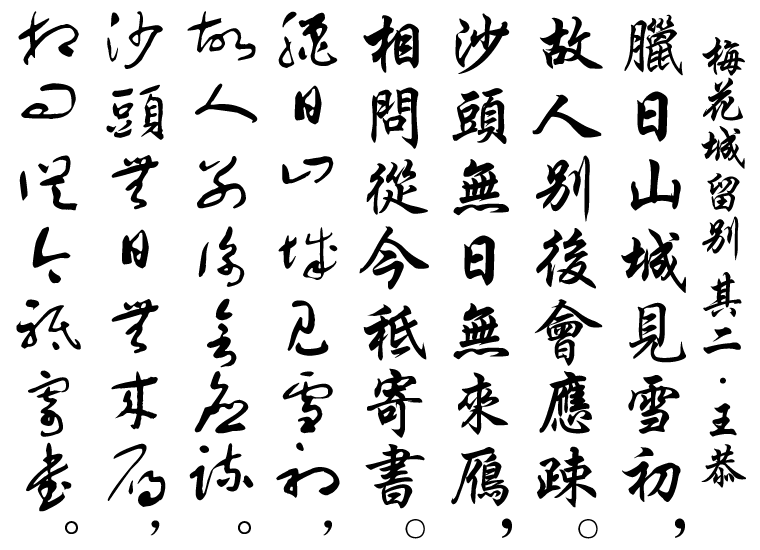 梅花城留别 其二・王恭
臘日山城見雪初，
故人别後會應疎。
沙頭無日無來鴈，
相問從今秪寄書。
臘日山城見雪初，
故人别後會應疎。
沙頭無日無來鴈，
相問從今秪寄書。